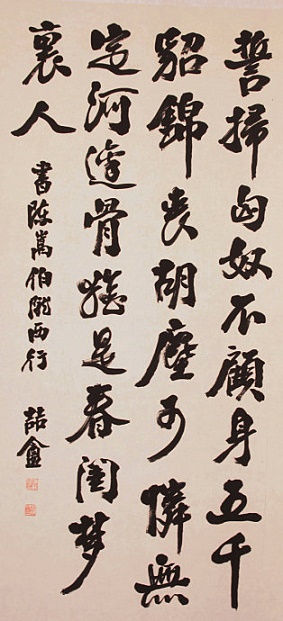 誓掃匈奴不顧身五千
貂錦喪胡塵可憐無
定河邊骨猶是春閨夢
裏人
書陳嵩伯隴西行
喆盦